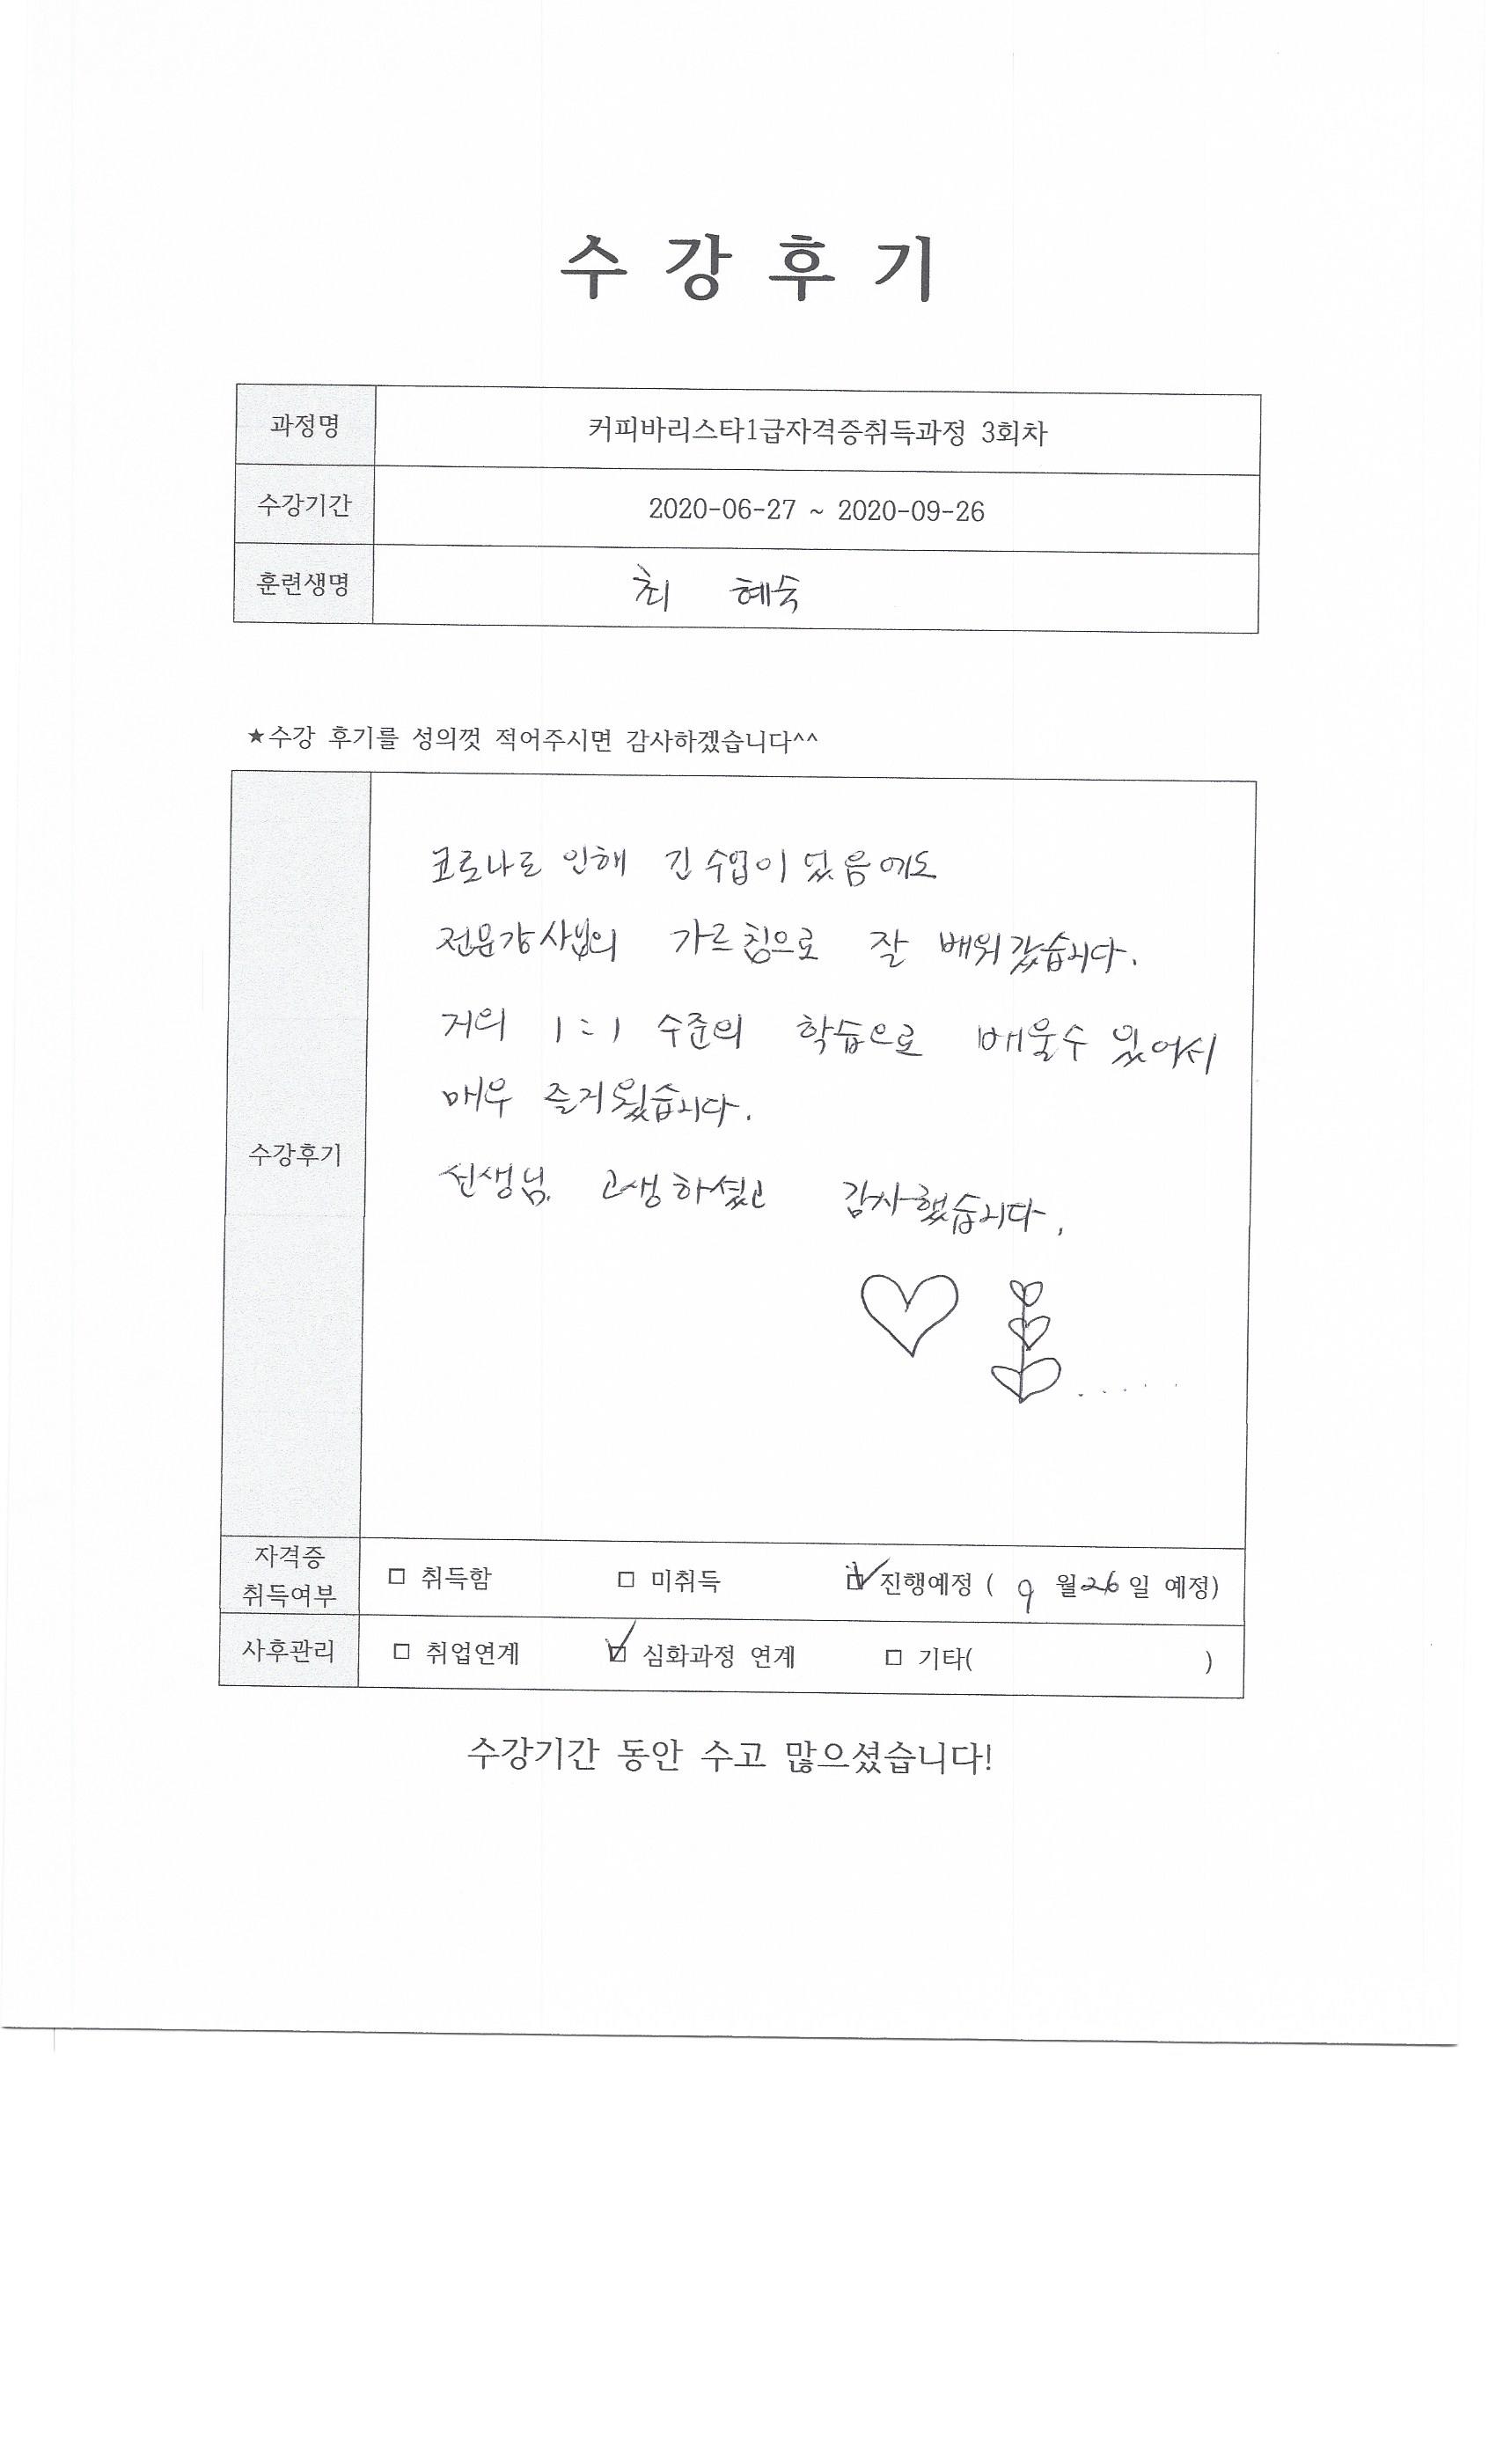 수 강 후 기
과정명 커피바리스타1급자격증취득과정 3회차
수강기간 2020-06-27 ~ 2020-09-26
훈련생명 최 혜숙
★수강 후기를 성의껏 적어주시면 감사하겠습니다^^
수강후기
코로나로 인해 긴 수업이 었음에도
전문강사님의 가르침으로 잘 배워갔습니다.
거의 1:1 수준의 학습으로 배울수 있어서
매우 즐거웠습니다.
선생님 고생하셨고 감사했습니다.
자격증 취득여부 □ 취득함 □ 미취득 ☑ 진행예정 ( 9 월 26 일 예정)
사후관리 □ 취업연계 ☑ 심화과정 연계 □ 기타( )
수강기간 동안 수고 많으셨습니다!